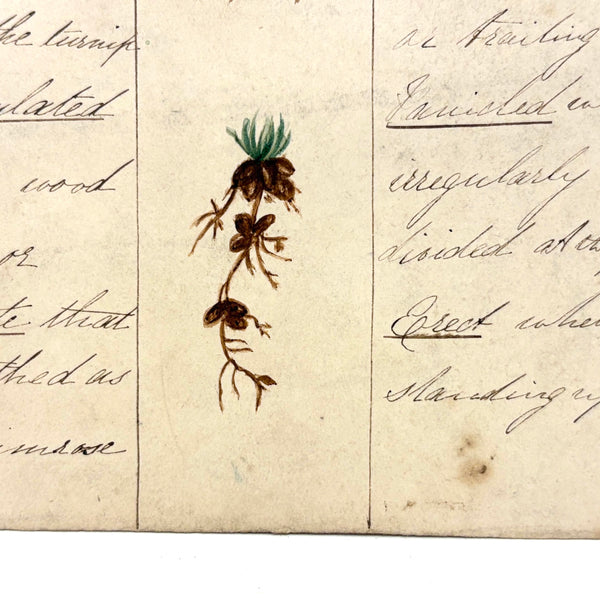 the turnip
ulated
wood
or
te that
thed as
imrose
or trailing
Panicled w
irregularly
divided at
Erect whe
standing up